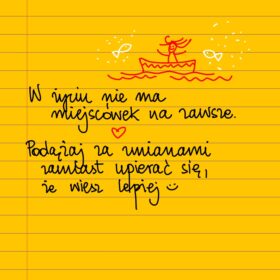 W życiu nie ma
miejscówek na zawsze.
Podążaj za zmianami
zamiast upierać się,
że wiesz lepiej